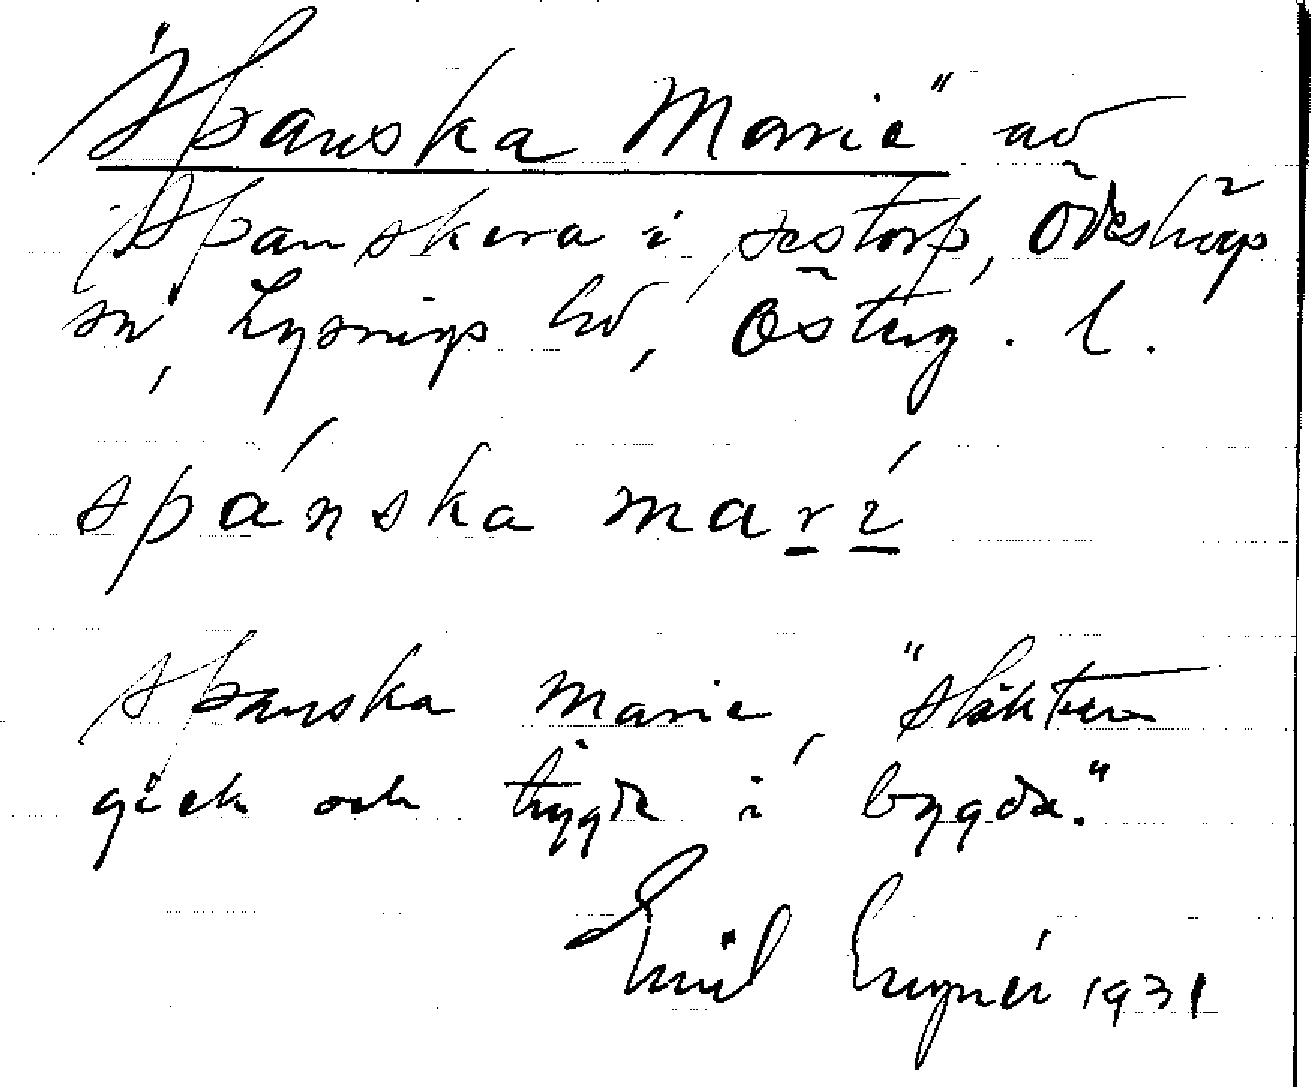 "Spanska Marie" av
Spanskera i Sestorp, Ödeshögs
sn, Lysings hd, Österg. l.
spánska marí
Spanska Marie, "släkten
gick och tiggde i bygda."
Emil Engnér 1931